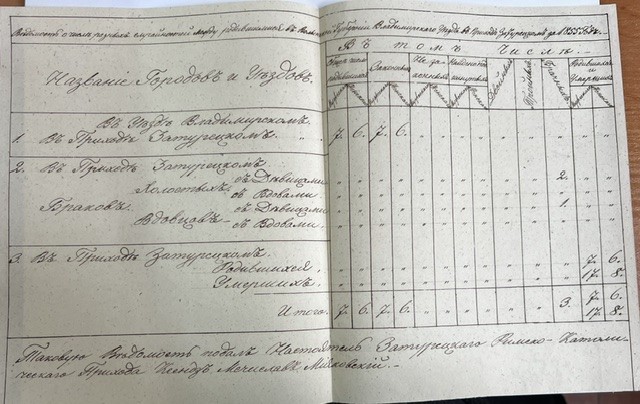 Ведомость о числе разных случайностей между родившимися въ Волынской Губернии Владимирскаго Уезда въ Приходе Затурецкомъ за 1855 годъ.
Названіе Городовъ и Уѣздовъ.
Въ томъ Числѣ.
Законныхъ
Близнецовъ
Браковъ
Въ Уѣздѣ Владимирскомъ.
1. Въ Приходѣ Затурецкомъ. 7. 6. 7. 6. „ „ „ „ „ „ „ „ „
2. Въ Приходѣ Затурецкомъ.
Холостыхъ съ Дѣвицами 2.
съ Вдовами
Браковъ. съ Дѣвицами 1.
Вдовцовъ съ Вдовами.
3. Въ Приходѣ Затурецкомъ.
Родившихся 7. 6.
Умершихъ. 17. 8.
Итого. 7. 6. 7. 6. „ „ „ „ „ „ 3. 7. 6.
17. 8.
Таковую Ведомость подалъ Настоятель Затурецкаго Римско-Католи-
ческаго Прихода Ксендзъ Мечиславъ